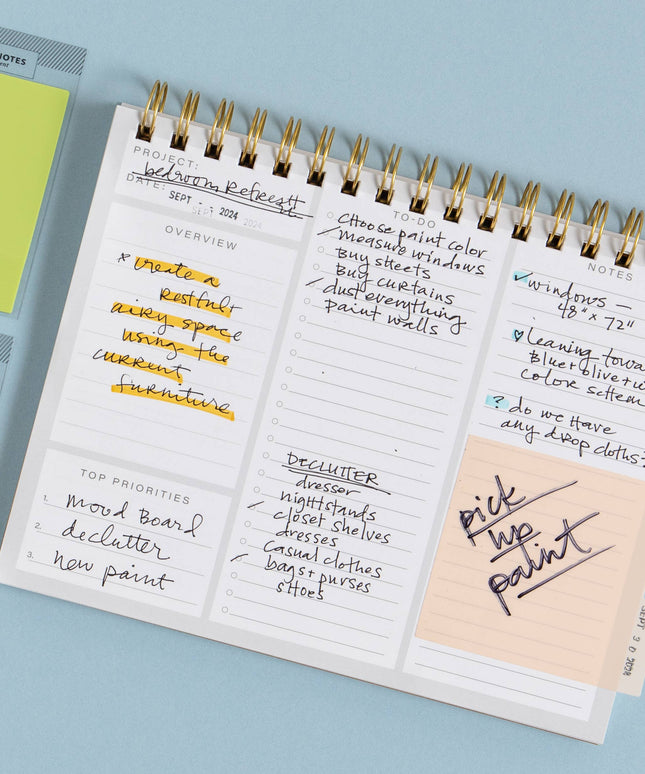 NOTES
PROJECT:
bedroom Refresh
DATE: SEPT 2024
OVERVIEW
* create a
restful +
airy space
using the
current
furniture
TOP PRIORITIES
1. mood Board
2. declutter
3. new paint
TO-DO
choose paint color
measure windows
Buy sheets
Buy curtains
dust everything
paint walls
DECLUTTER
dresser
nightstands
closet shelves
dresses
casual clothes
bags + purses
shoes
NOTES
✓ windows —
48" x 72"
♡ leaning towa
Blue + olive + w
color schem
? do we have
any drop cloths?
pick
up
paint
SEPT 30 2024